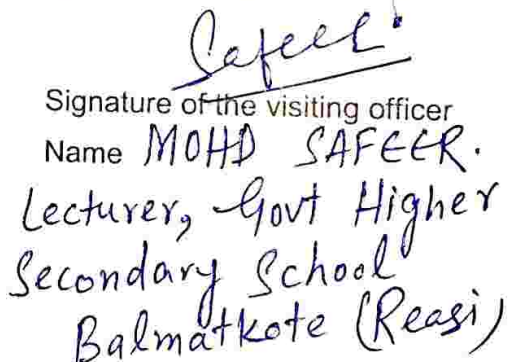 Safeer.
Signature of the visiting officer
Name MOHD SAFEER.
Lecturer, Govt Higher
Secondary School
Balmatkote (Reasi)